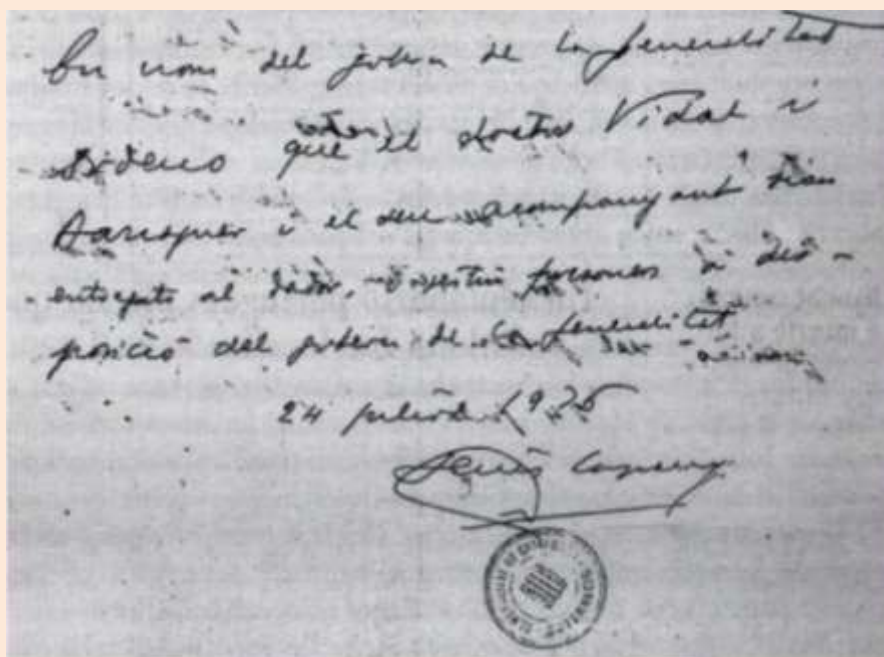 En nom del govern de la Generalitat
que el doctor Vidal i
Barraquer i el seu acompanyant sian
entregats al dador, persones a dis-
posició del govern de la Generalitat
24 juliol 1936
Lluís Companys
GENERALITAT DE CATALUNYA